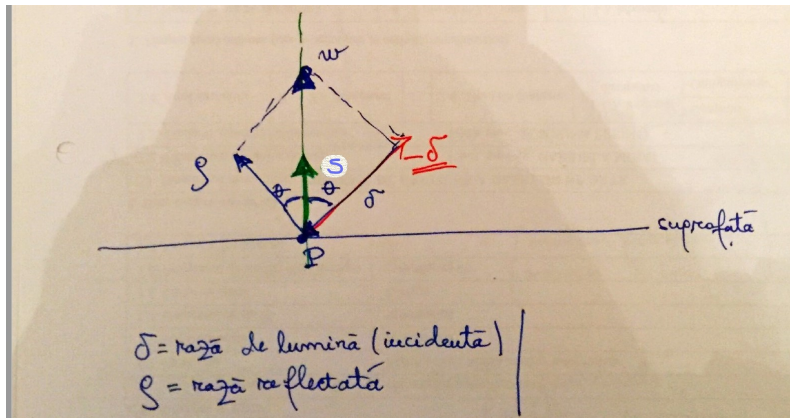 w
-δ
ρ
S
θ θ
δ
suprafață
P
δ = rază de lumină (incidentă)
ρ = rază reflectată